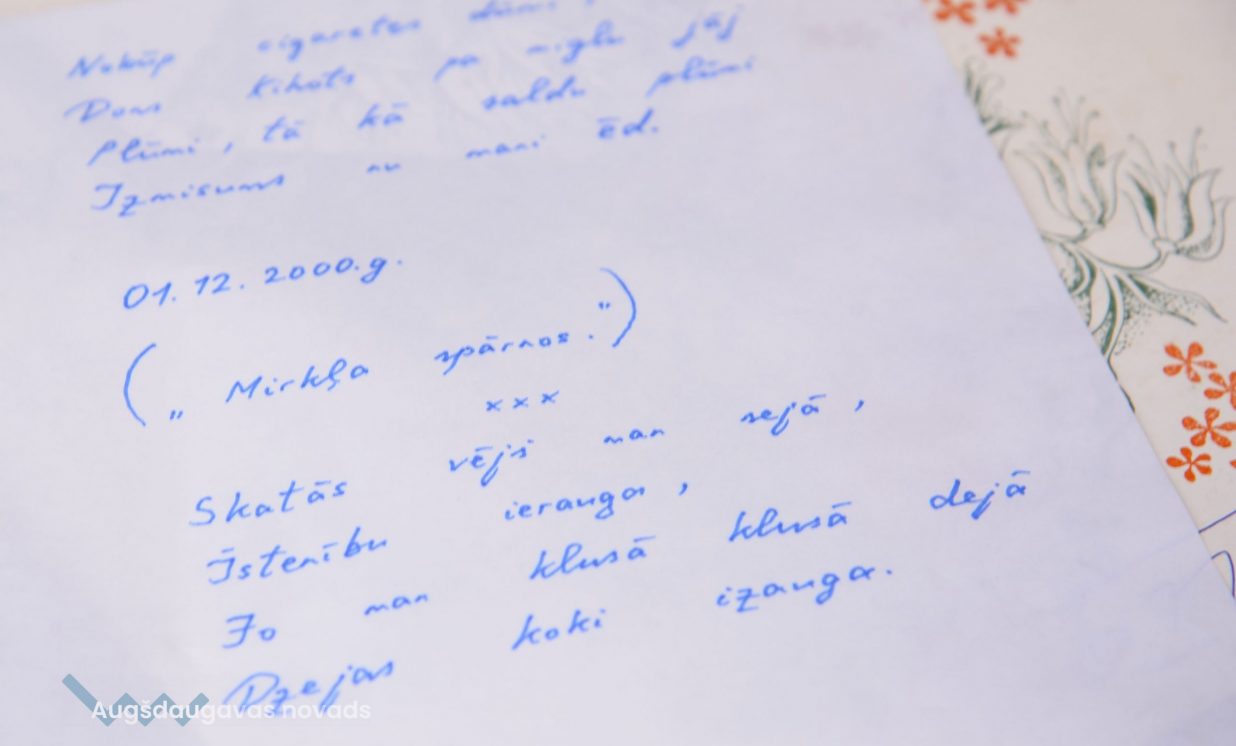 Nokūp cigaretes dūmi,
Dons Kihots pa miglu jāj
Plūmi, tā kā saldu plūmi
Izmisums nu mani ēd.
01. 12. 2000.g.
(„ Mirkļa spārnos.")
xxx
Skatās vējš man sejā,
Īstenību ierauga,
Jo man klusā klusā dejā
Dzejas koki izauga.
Augšdaugavas novads